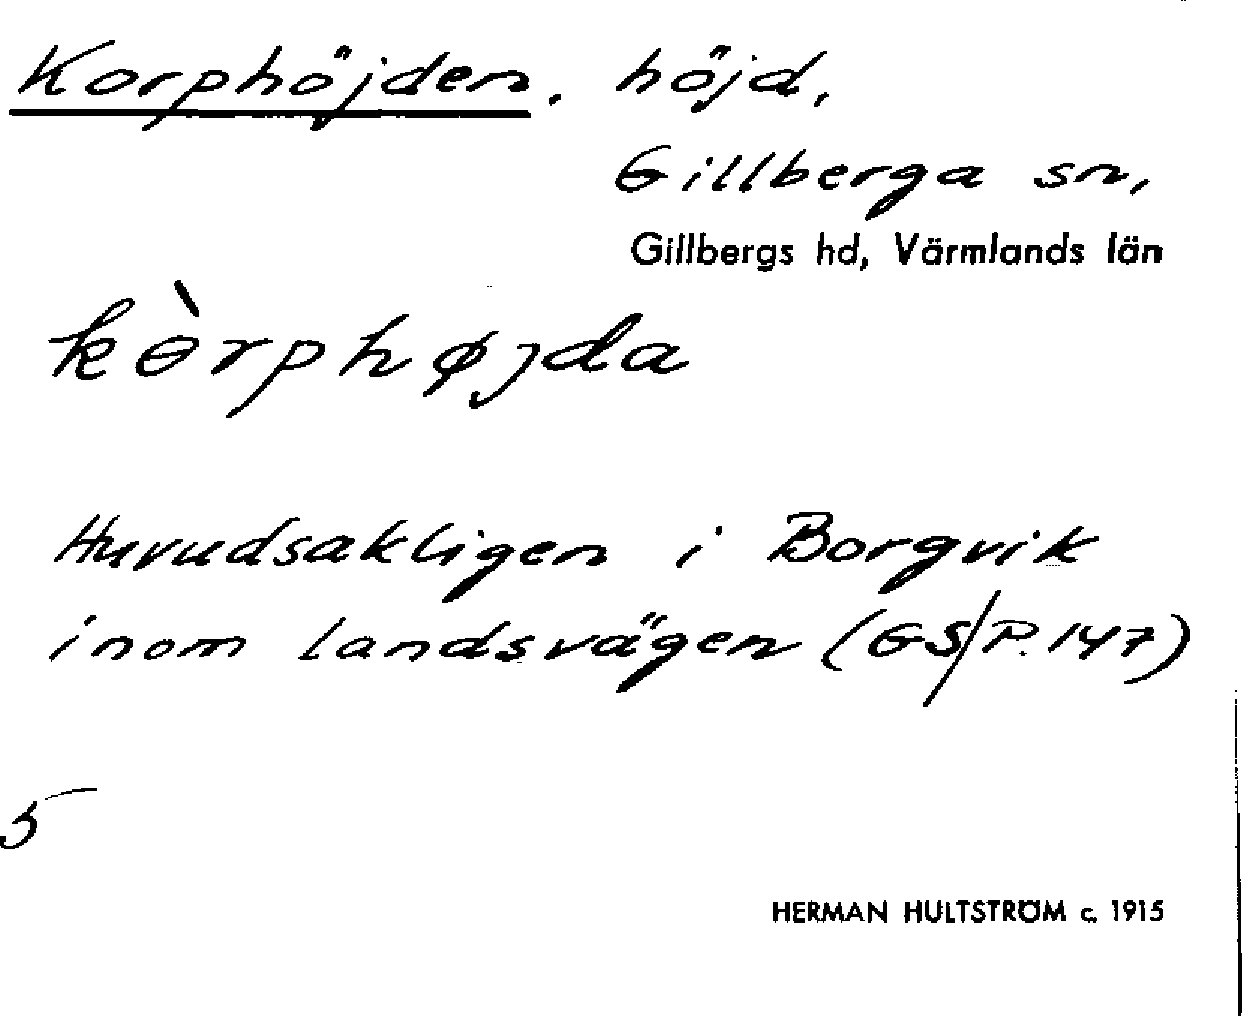 Korphöjden. höjd,
Gillberga sn,
Gillbergs hd, Värmlands län
kɵ̀rphøjda
Huvudsakligen i Borgvik
inom landsvägen (GS/P.147)
5
HERMAN HULTSTRÖM c. 1915